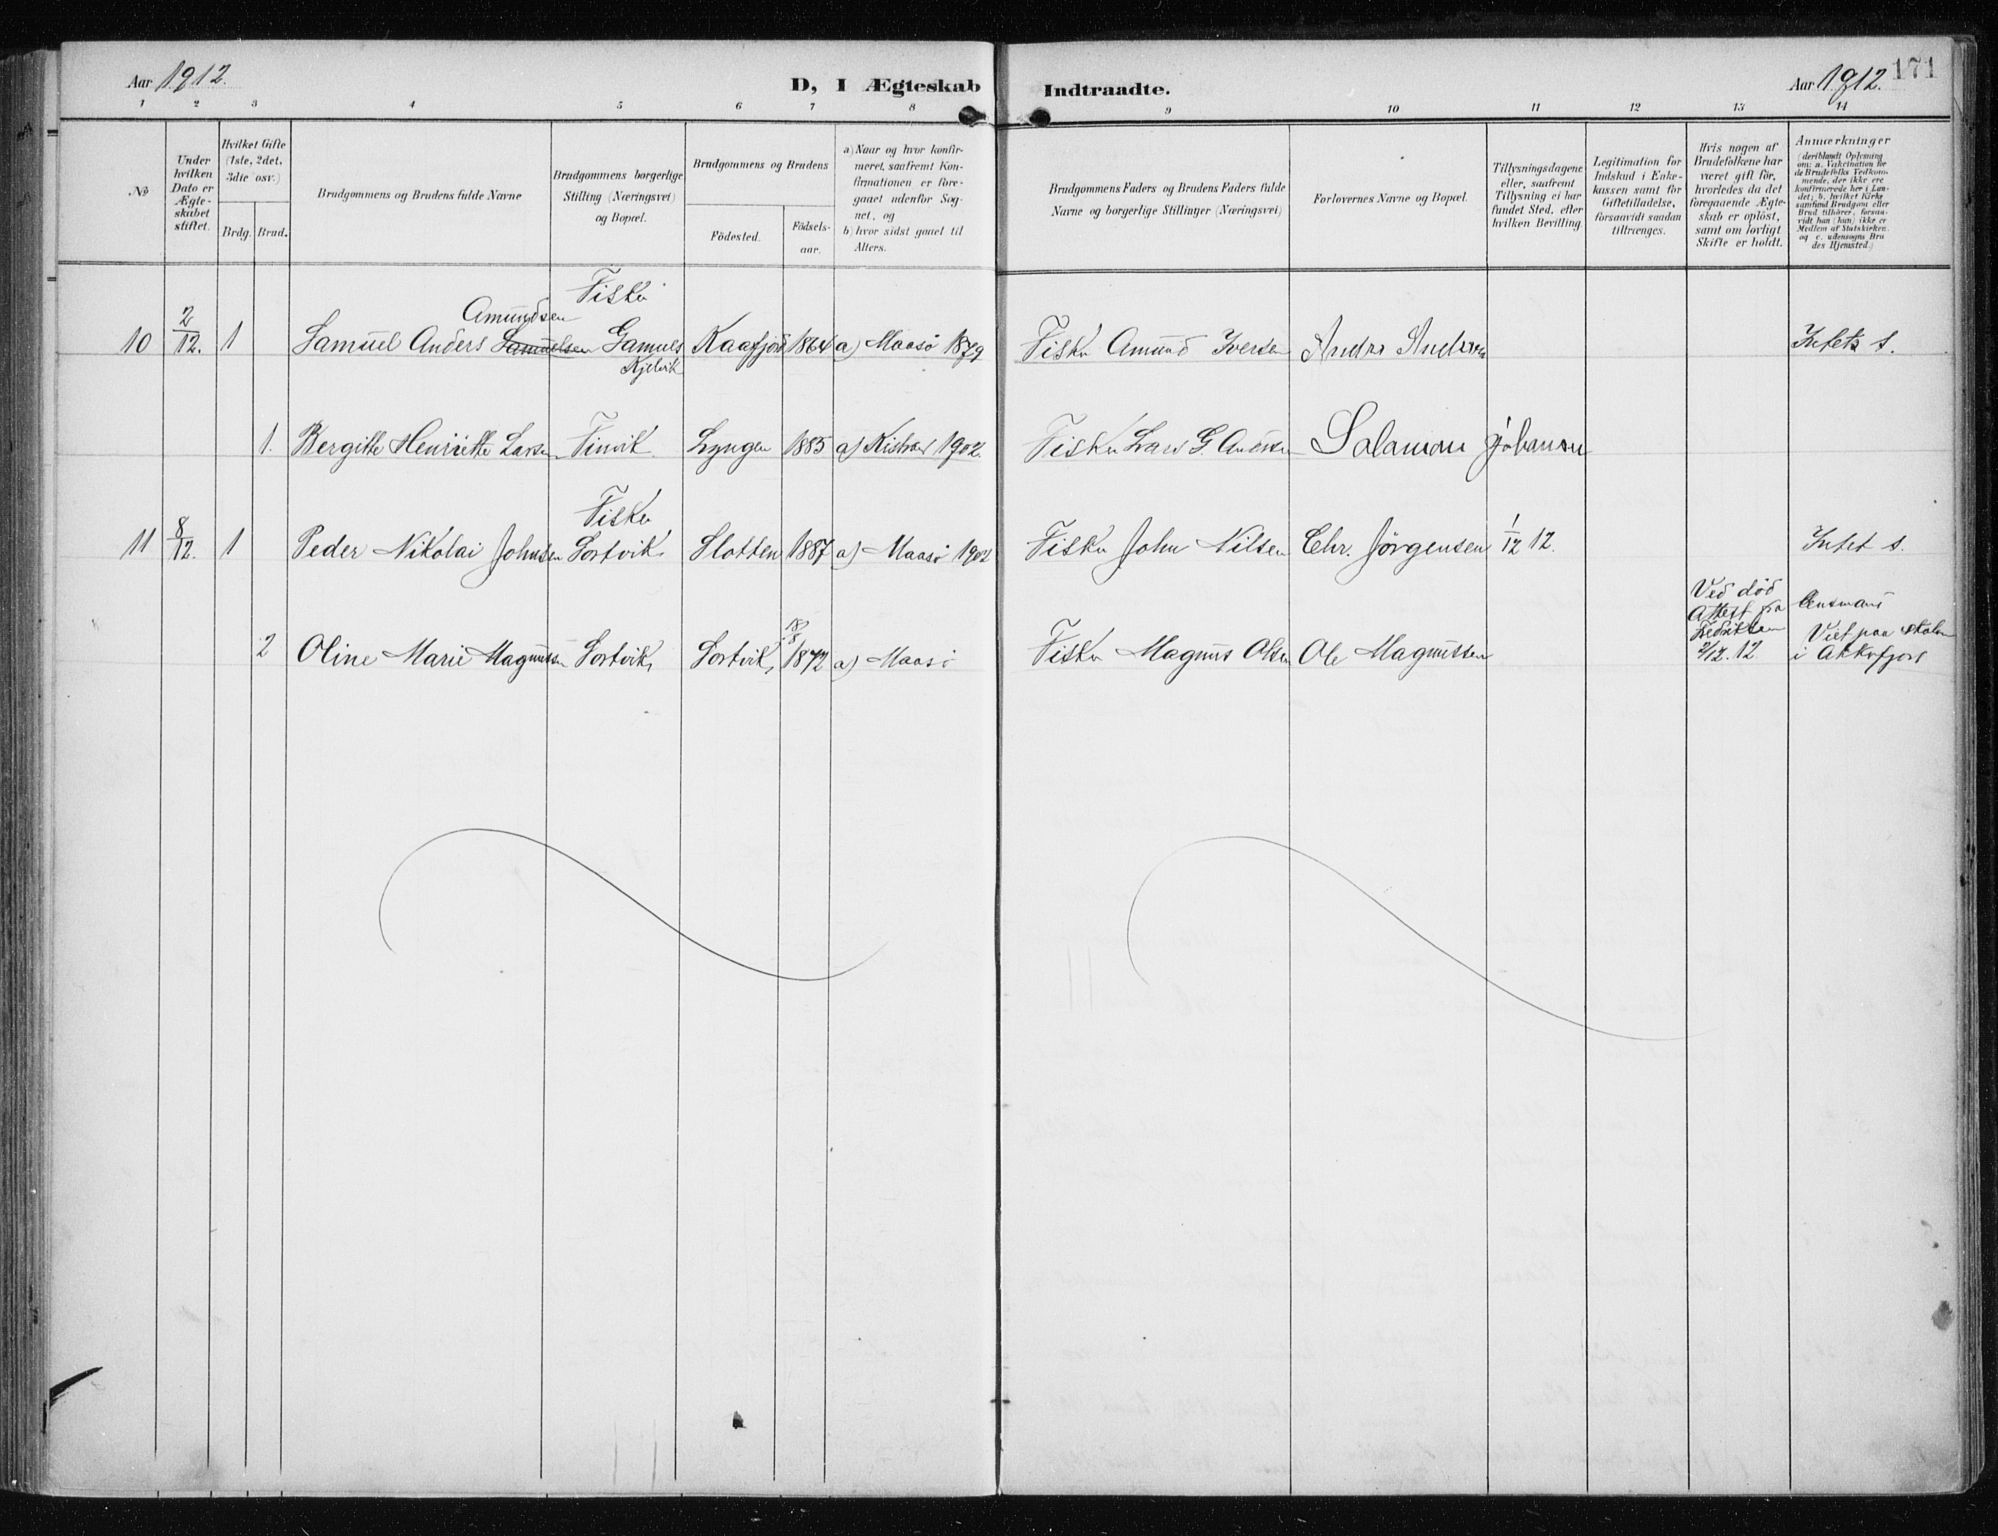 Aar 1912.
D, I Ægteskab Indtraadte.
Aar 1912.
171
1 2 3 4 5 6 7 8 9 10 11 12 13 14
No
Under hvilken Dato er Ægteskabet stiftet.
Hvilket Gifte (1ste, 2det, 3die osv.)
Brdg. Brud.
Brudgommens og Brudens fulde Navne
Brudgommens borgerlige Stilling (Næringsvei) og Bopæl.
Brudgommens og Brudens
Födested.
Födselsaar.
a) Naar og hvor konfirmeret, saafremt Konfirmationen er foregaaet udenfor Sognet, og
b) hvor sidst gaaet til Alters.
Brudgommens Faders og Brudens Faders fulde Navne og borgerlige Stillinger (Næringsvei)
Forlovernes Navne og Bopæl.
Tillysningsdagene eller, saafremt Tillysning ei har fundet Sted, efter hvilken Bevilling.
Legitimation for Indskud i Enkekassen samt for Giftetilladelse, forsaavidt saadan tiltrænges.
Hvis nogen af Brudefolkene har været gift för, hvorledes da det foregaaende Ægteskab er oplöst, samt om lovligt Skifte er holdt.
Anmærkninger
(deriblandt Oplysning om: a. Vakcination for de Brudefolks Vedkommende, der ikke ere konfirmerede her i Landet; b. hvilket Kirkesamfund Brudgom eller Brud tilhörer, forsaavidt han (hun) ikke er Medlem af Statskirken, og c. udensogns Brudes Hjemsted.)
Amundsen
Fisker
10 2/12. 1 Samuel Anders Samuelsen Gamvik Kaafjord 1864 a) Maasö 1879 Fisker Amund Iversen Anders Andersen Intet s.
Kjelvik
1. Bergitte Henriette Larsen Finvik Lyngen 1885 a) 1902. Fisker Lars G. Andersen Salamon Johansen
Fisker
11 8/12. 1 Peder Nikolai Johnsen Sortvik Slotten 1887 a) Maasö 1902 Fisker John Nilsen Chr. Jörgensen 1/12 12. Intet s.
2 Oline Marie Magnussen Sortvik, Sortvik, 18/8 1872 a) Maasö Fisker Magnus Olsen Ole Magnussen
Ved död
Attest fra
2/12. 12
Lensmand
Viet paa skolen
i Akkarfjord